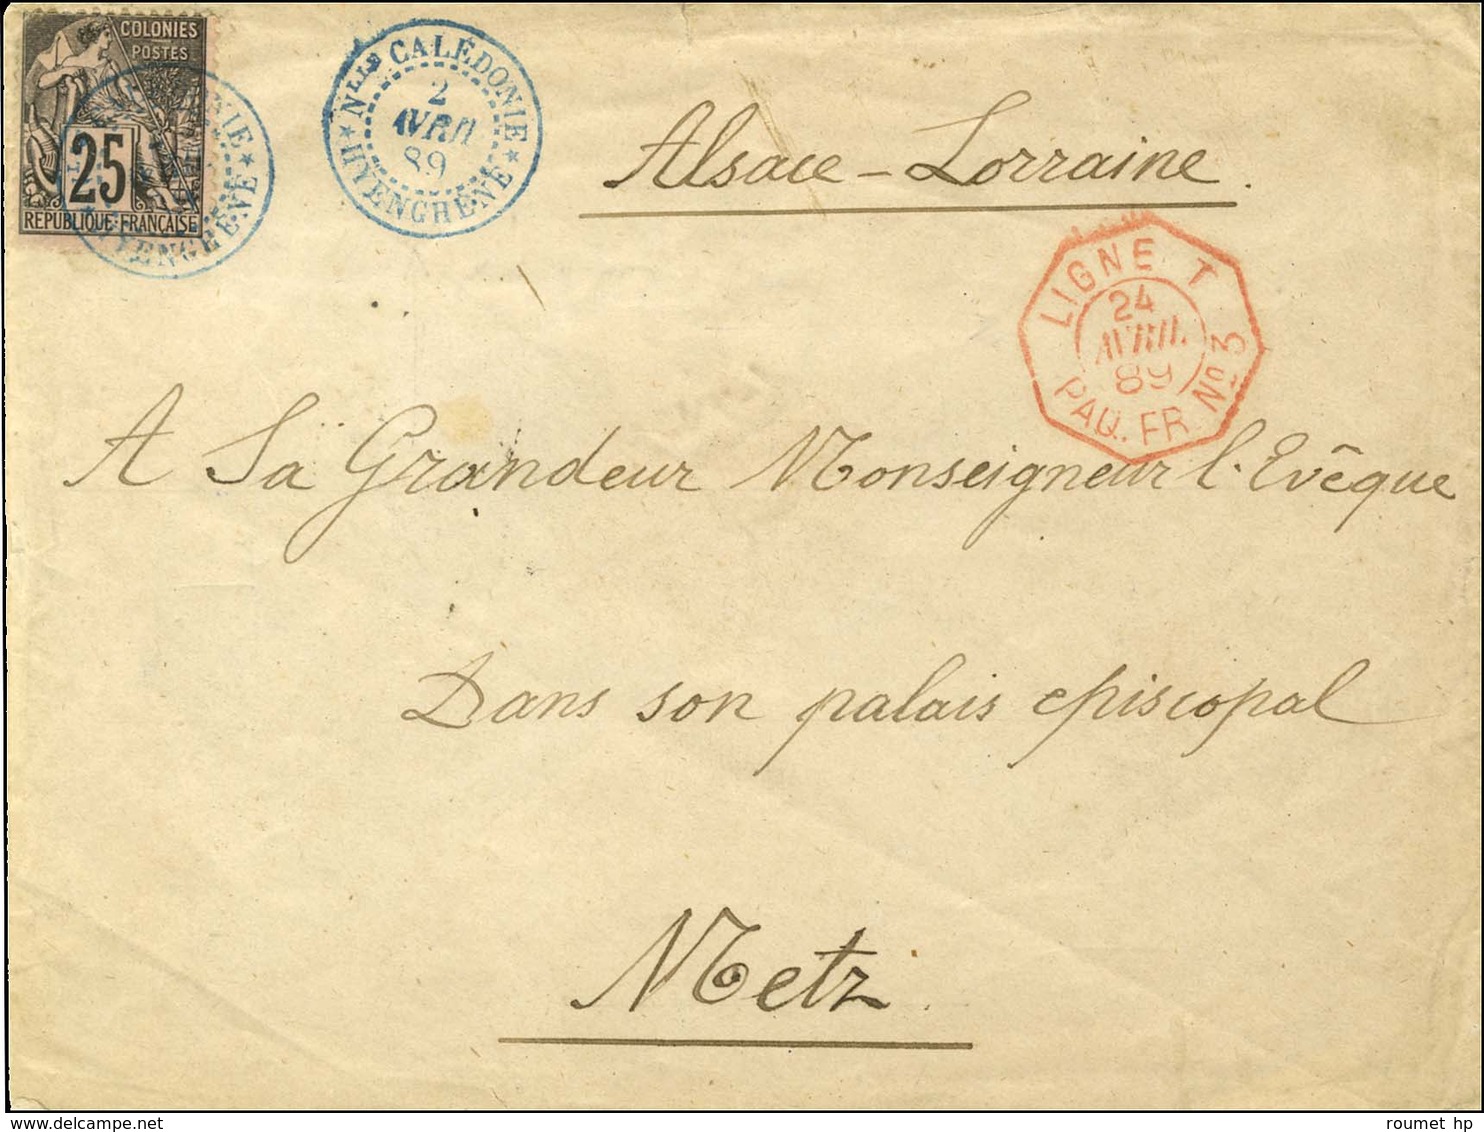 COLONIES
POSTES
25
REPUBLIQUE FRANÇAISE
NIE * YENGHENE *
* Nlle CALÉDONIE *
2
AVRIL
89
HYENGHENE
Alsace-Lorraine.
LIGNE T
24
AVRIL
89
PAQ. FR. No 3
A Sa Grandeur Monseigneur l'Evêque
Dans son palais episcopal
Metz.
delcampe.net
roumet hp